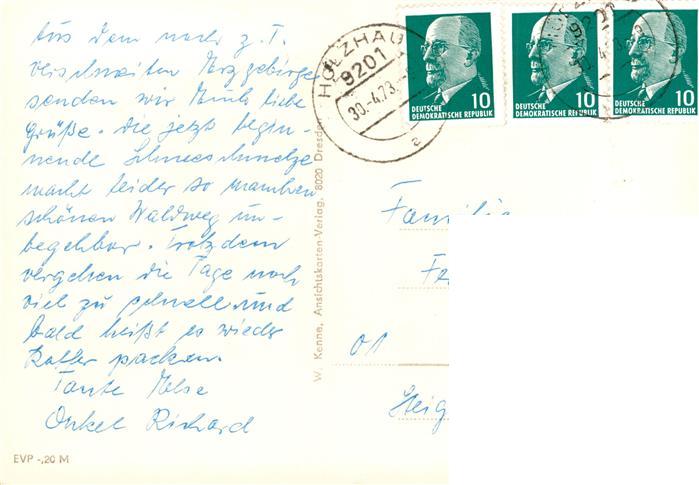 Aus dem noch z. T.
verschneiten Erzgebirge
senden wir Euch liebe
Grüße. Die jetzt begin-
nende Schneeschmelze
macht leider so manchen
schönen Waldweg un-
begehbar. Trotzdem
vergehen die Tage noch
viel zu schnell und
bald heißt es wieder
Koffer packen.
Tante Else
Onkel Richard
EVP -,20 M
W. Kenne, Ansichtskarten-Verlag, 8020 Dresden
HOLZHAU
9201
30.-4.73.
10
DEUTSCHE
DEMOKRATISCHE REPUBLIK
10
DEUTSCHE
DEMOKRATISCHE REPUBLIK
10
DEUTSCHE
DEMOKRATISCHE REPUBLIK
Familie
Fr
01
Heig